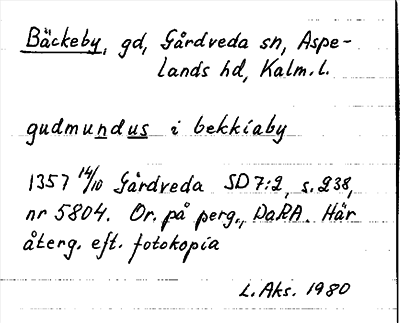 Bäckeby, gd, Gårdveda sn, Aspe-
lands hd, Kalm. l.
gudmundus i bekkiaby
1357 14/10 Gårdveda SD 7:2, s. 238,
nr 5804. Or. på perg., DaRA. Här
återg. eft. fotokopia
L. Aks. 1980